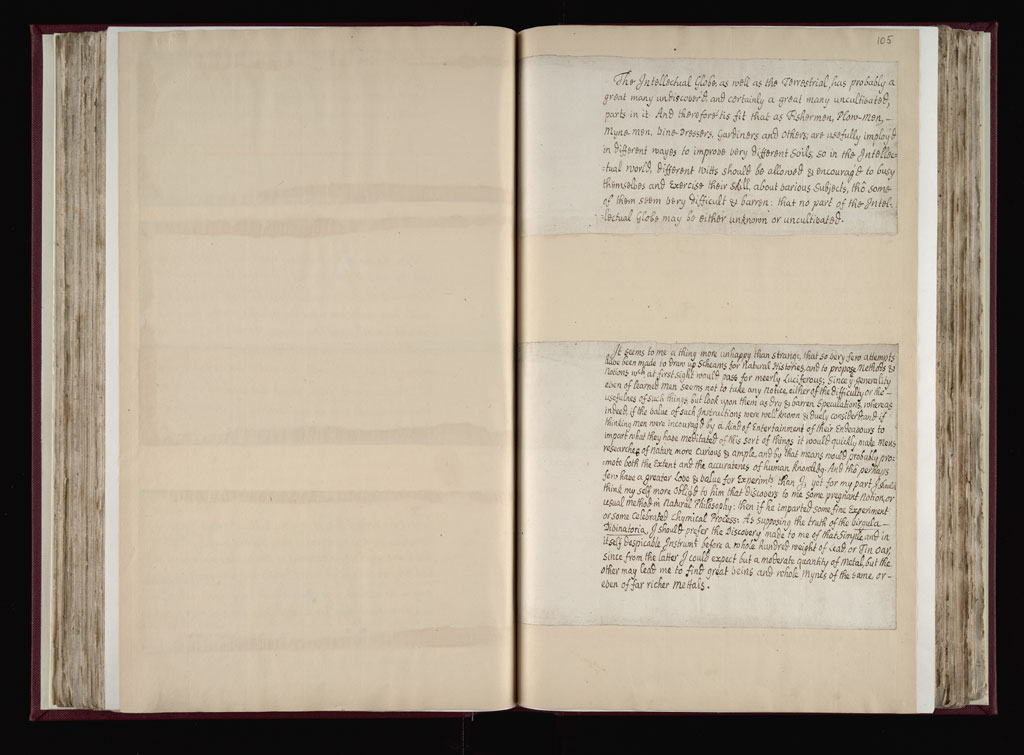 105
The Intellectual Globe, as well as the Terrestrial, has probably a
great many undiscover'd, and certainly a great many uncultivated,
parts in it. And therefore 'tis fit that as Fishermen, Plow-men, –
Myne-men, Vine-Dressers, Gardiners and others; are usefully imploy'd
in different wayes to improve very different Soils, so in the Intellec=
=tual World, different Witts should be allowed & encourag'd to busy
themselves and Exercise their Skill, about various Subjects, tho some
of them seem very difficult & barren: that no part of the Intel=
=lectual Globe may be either unknown or uncultivated.
It seems to me a thing more unhappy than strange, that so very few attempts
have been made to Draw up Scheams for Natural Histories, and to propose Methods &
Notions wch at first sight would pass for meerly Luciferous; Since ye generality
even of learned Men seems not to take any Notice, either of the difficulty or the –
usefulnes of such things, but look upon them as Dry & barren Speculations, whereas
indeed, if the value of such Instructions were well known & duely consider'd and if
thinking men were incourag'd by a kind of Entertainment of their Endeavours to
impart what they have meditated of this sort of things it would quickly make Mens
researches of Nature more curious & ample, and by that means would probably pro=
=mote both the Extent and the accuratenes of human Knowledg. And tho perhaps
few have a greater Love & value for Experimts than I, yet for my part, I should
think my self more oblig'd to him that Discovers to me some pregnant Notion, or
usual method in Natural Philosophy: then if he imparted some fine Experiment
or some Celebrated Chymical Process: As supposing the truth of the Virgula –
Divinatoria, I should prefer the Discovery made to me of that Simple and in
itself Despicable Instrumt before a whole hundred weight of Lead or Tin Oar,
since from the latter I could expect but a moderate quantity of Metal, but the
other may lead me to find great veins and whole Mynes of the same or –
even of far richer Mettals.